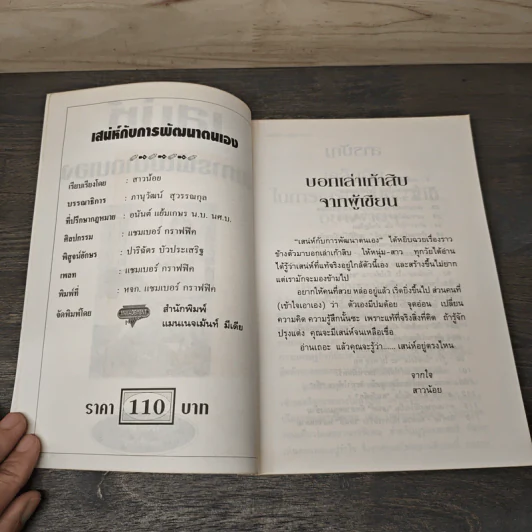 เสน่ห์กับการพัฒนาตนเอง
เรียบเรียงโดย : สาวน้อย
บรรณาธิการ : ภานุวัฒน์ สุวรรณกุล
ที่ปรึกษากฎหมาย : อนันต์ แย้มเกษร น.บ. นศ.บ.
ศิลปกรรม : แชมเบอร์ กราฟฟิค
พิสูจน์อักษร : ปาริฉัตร บัวประเสริฐ
เพลท : แชมเบอร์ กราฟฟิค
พิมพ์ที่ : หจก. แชมเบอร์ กราฟฟิค
จัดพิมพ์โดย สำนักพิมพ์
แมนเนจเม้นท์ มีเดีย
ราคา 110 บาท
บอกเล่าเก้าสิบ
จากผู้เขียน
"เสน่ห์กับการพัฒนาตนเอง" ได้หยิบฉวยเรื่องราว
ข้างตัวมาบอกเล่าเก้าสิบ ให้หนุ่ม-สาว ทุกวัยได้อ่าน
ได้รู้ว่าเสน่ห์ที่แท้จริงอยู่ใกล้ตัวนี้เอง และสร้างขึ้นไม่ยาก
แต่เรามักจะมองข้ามไป
อยากให้คนที่สวย หล่ออยู่แล้ว เริ่ดยิ่งขึ้นไป ส่วนคนที่
(เข้าใจเอาเอง) ว่า ตัวเองมีปมด้อย จุดอ่อน เปลี่ยน
ความคิด ความรู้สึกนั้นซะ เพราะแท้ที่จริงสิ่งที่คิด ถ้ารู้จัก
ปรุงแต่ง คุณจะมีเสน่ห์จนเหลือเชื่อ
อ่านเถอะ แล้วคุณจะรู้ว่า..... เสน่ห์อยู่ตรงไหน
จากใจ
สาวน้อย